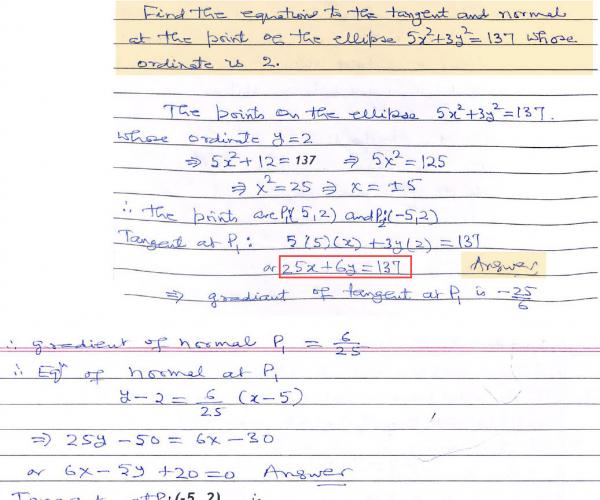 Find the equations to the tangent and normal
at the point of the ellipse 5x²+3y²=137 whose
ordinate is 2.
The points on the ellipse 5x²+3y²=137.
whose ordinate y=2
⇒ 5x²+12=137 ⇒ 5x²=125
⇒ x²=25 ⇒ x=±5
∴ the points are P₁(5,2) and P₂(-5,2)
Tangent at P₁: 5(5)(x)+3y(2)=137
or 25x+6y=137 Answer
⇒ gradient of tangent at P₁ is -25/6
∴ gradient of normal P₁ = 6/25
∴ Eqⁿ of normal at P₁
y-2 = 6/25 (x-5)
⇒ 25y-50=6x-30
or 6x-25y+20=0 Answer
(-5,2)